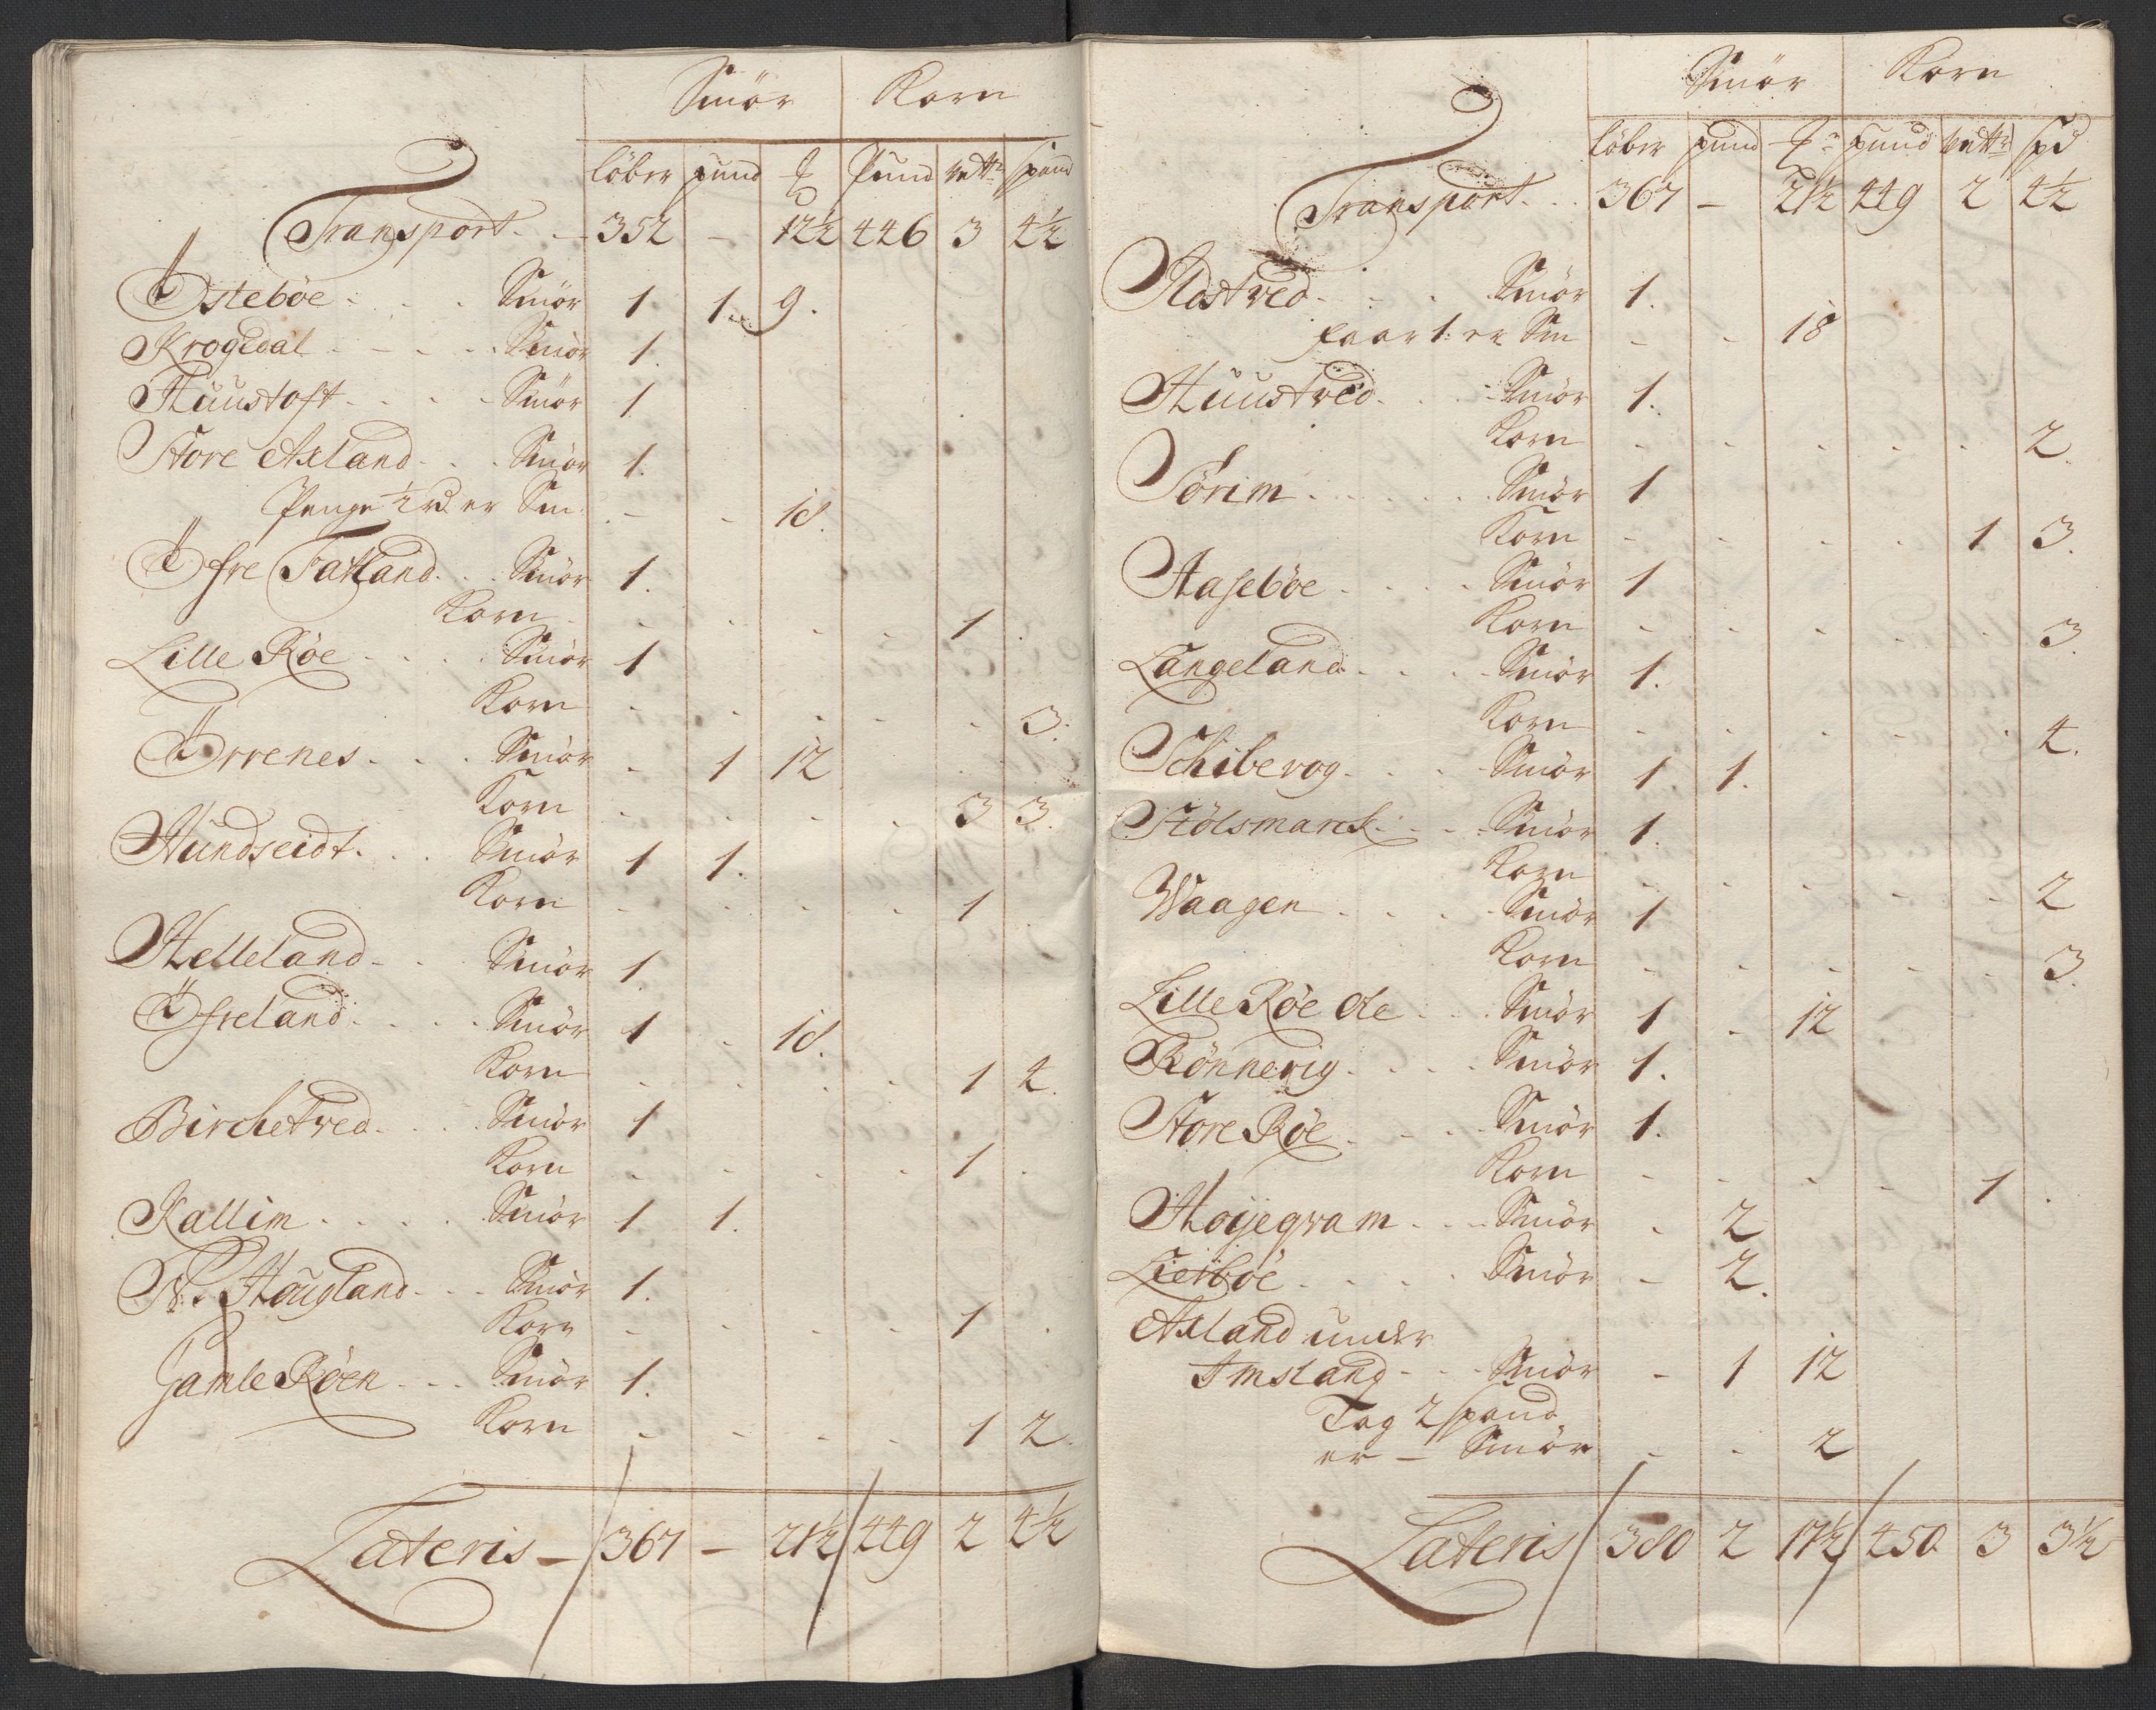 Smör Korn
löber pund ℔ Pund vetter spand
Transport - 352 - 12½ 446 3 4½
Östebøe Smör 1 1 9
Krogedal Smör 1
Huustoft Smör 1
Store Axland Smör 1
Penge ½ rd er Sm - - 18
Øfre Fatland Smör 1
Korn - - - - 1
Lille Røe Smör 1
Korn - - - - - 3
Örrenes Smör - 1 12
Korn - - - - 3 3
Hundseidt Smör 1 1
Korn - - - - 1
Helleland Smör 1
Øfreland Smör 1 - 18
Korn - - - - 1 4
Birchetved Smör 1
Korn - - - - 1
Kallim Smör 1 1
N. Hougland Smör 1
Korn - - - - 1
Gamle Røen Smör 1
Korn - - - - 1 2
Lateris - 367 - 21½ 449 2 4½
Smör Korn
löber pund ℔ pund vetter spd
Transport 367 - 21½ 449 2 4½
Smör 1
faar 1 er Sm - - 18
Huustved Smör 1
Korn - - - - - 2
Sörim Smör 1
Korn - - - - 1 3
Aasebøe Smör 1
Korn - - - - - 3
Langeland Smör 1
Korn - - - - - 4
Schibevog Smör 1 1
Stölsmarck Smör 1
Korn - - - - - 2
Waagen Smör 1
Korn - - - - - 3
Lille Røe Smör 1 - 12
Rönnevig Smör 1
Store Røe Smör 1
Korn - - - - 1
Hoyegram Smör - 2
Smör - 2
Axland under
Imsland Smör - 1 12
Tag 2 spand
er - Smör - - 2
Lateris 380 2 17½ 450 3 3½